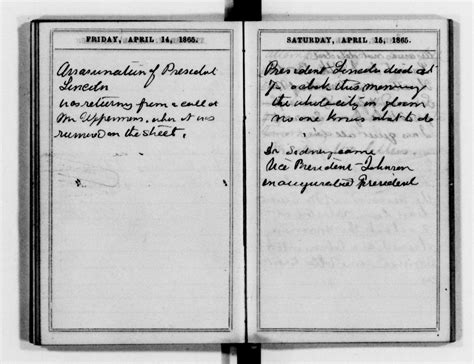 FRIDAY, APRIL 14, 1865.
Assassination of President
Lincoln
was returning from a call at
Mr. Uppermans, when it was
rumored on the street.
SATURDAY, APRIL 15, 1865.
President Lincoln died at
7 o clock this morning
the whole city in gloom
no one knows what to do.
Dr Sidney came
Vice President Johnson
inaugurated President